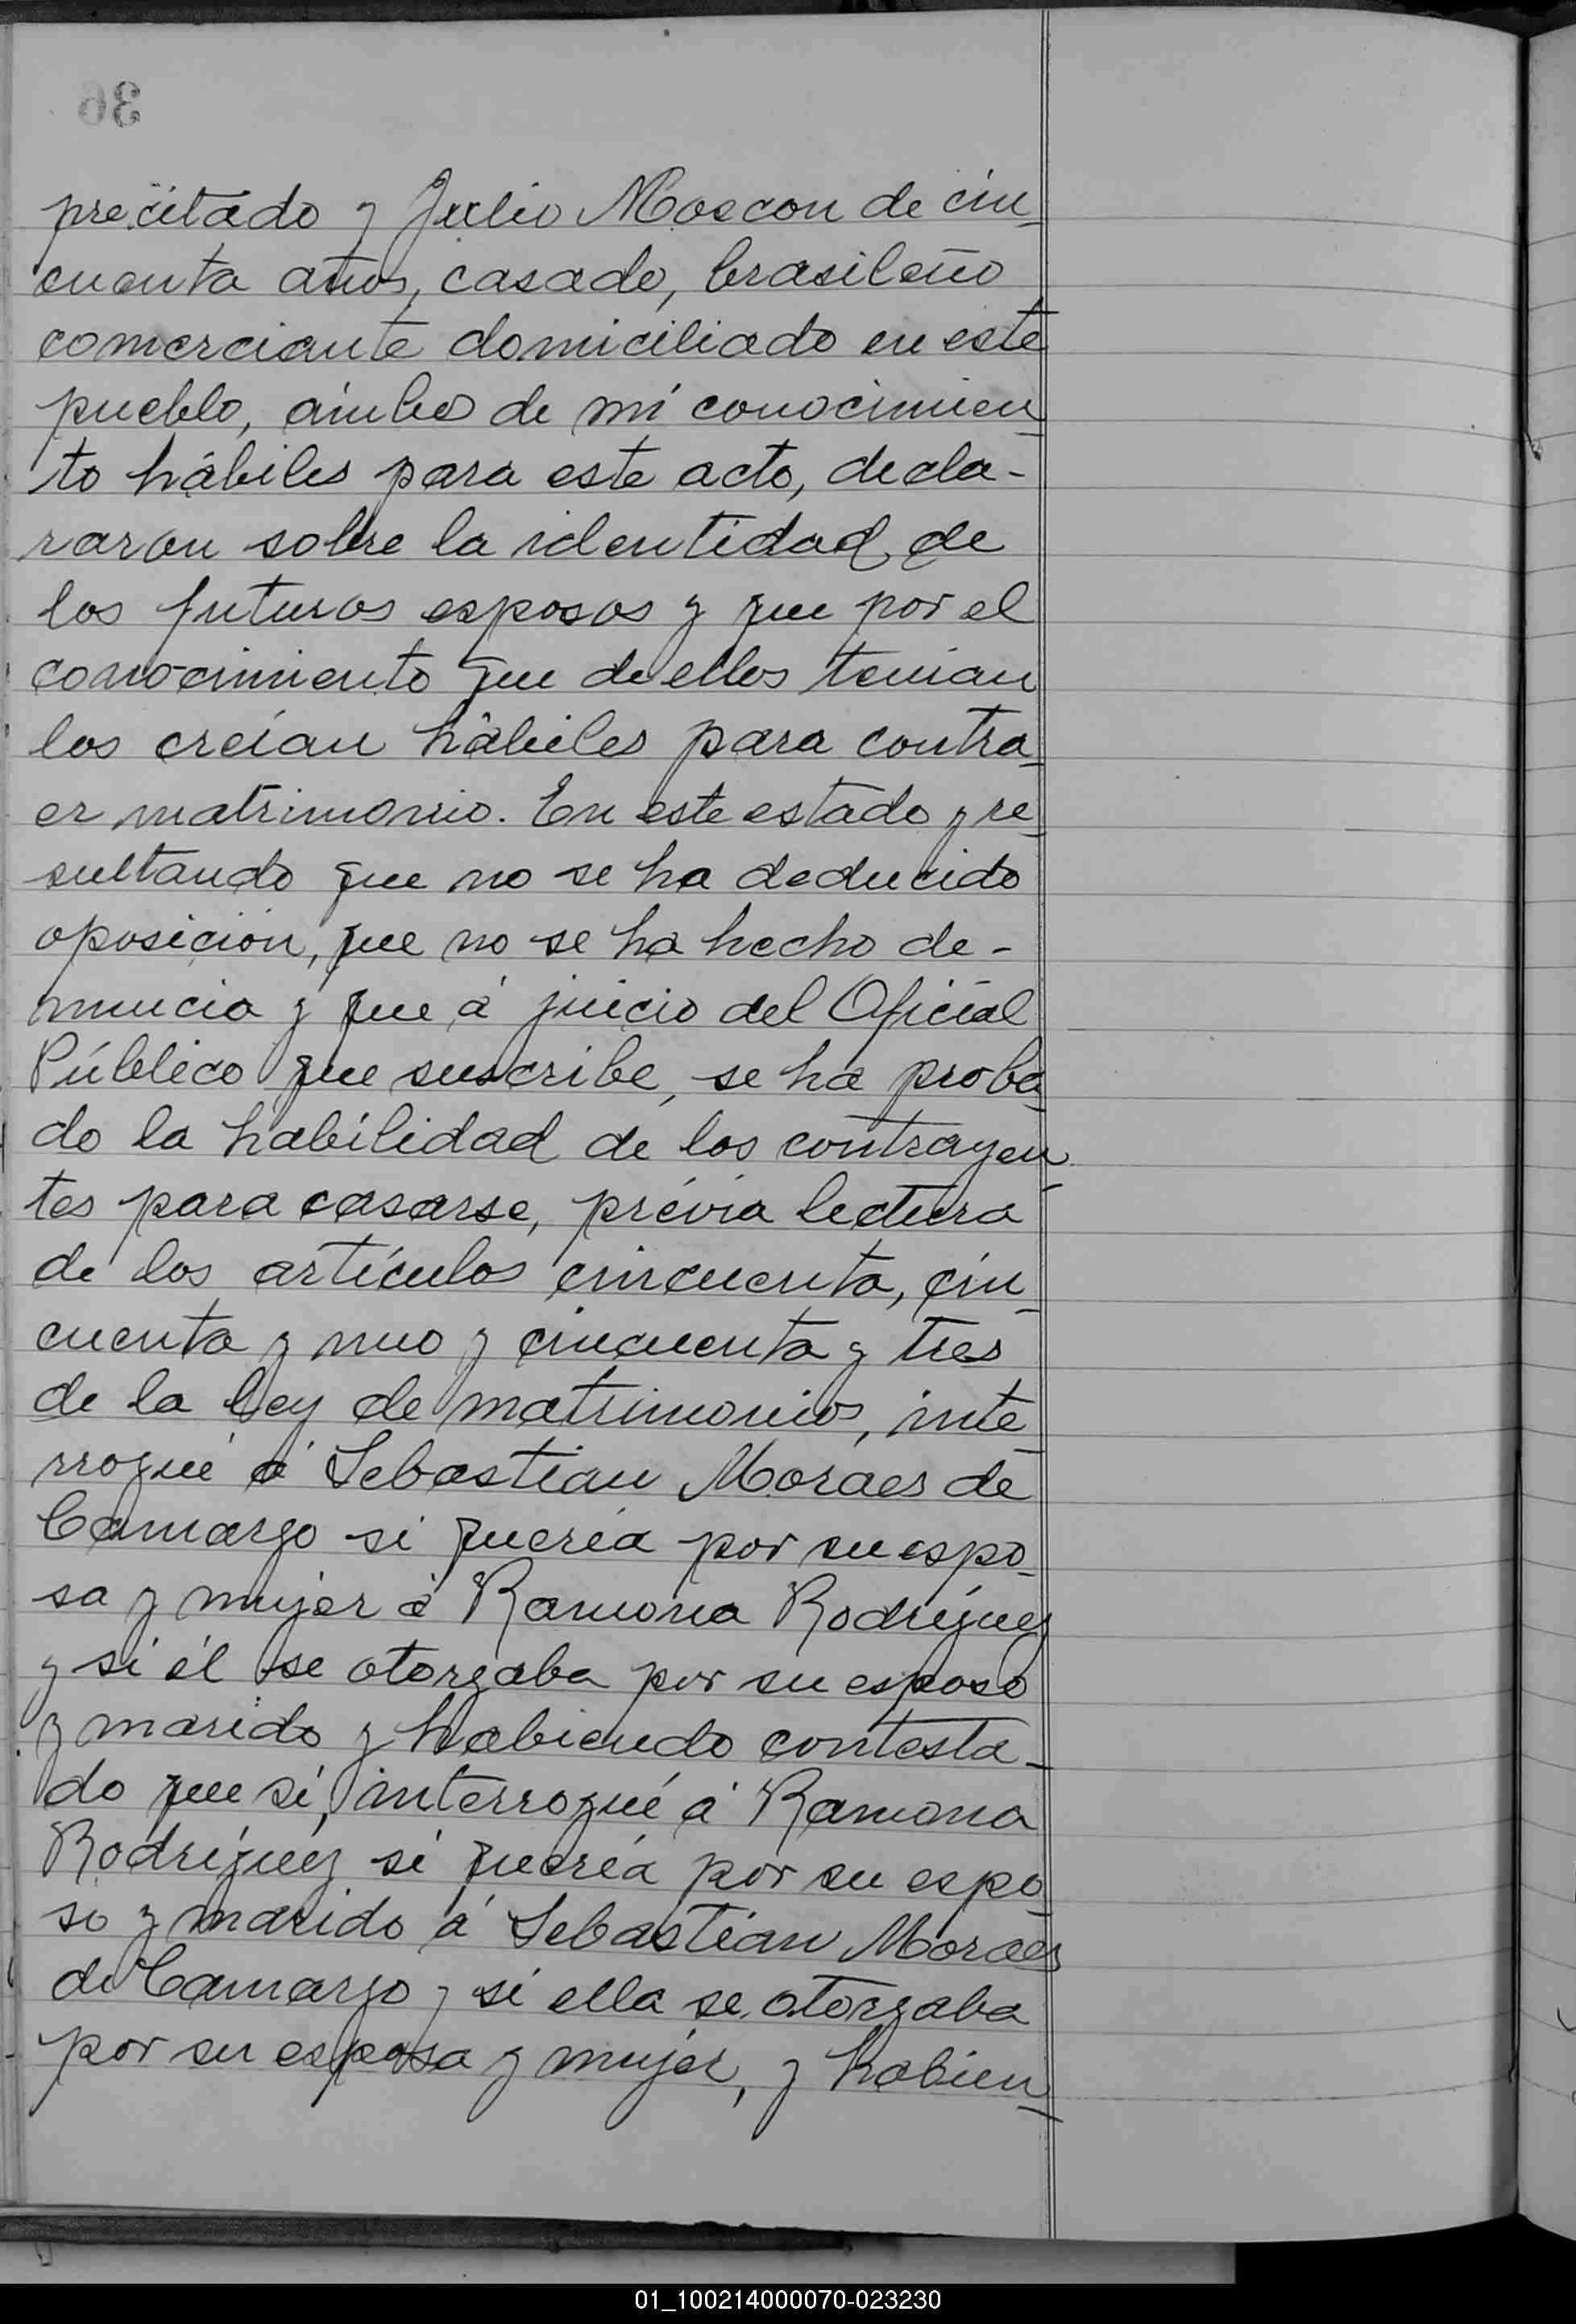 36
precitado y Julio Moscon de cin_
cuenta años, casado, brasileño
comerciante domiciliado en este
pueblo, ámbos de mi conocimien_
to hábiles para este acto, decla-
raron sobre la identidad de
los futuros esposos y que por el
conocimiento que de ellos tenían
los creían hábiles para contra_
er matrimonio. En este estado y re_
sultando que no se ha deducido
oposición, que no se ha hecho de-
nuncia y que á juicio del Oficial
Público que suscribe, se ha proba_
do la habilidad de los contrayen_
tes para casarse, prévia lectura
de los artículos cincuenta, cin_
cuenta y uno y cincuenta y tres
de la ley de matrimonios, inte_
rrogué á Sebastian Moraes de
Camargo si quería por su espo_
sa y mujer á Ramona Rodríguez
y si él se otorgaba por su esposo
y marido y habiendo contesta_
do que sí, interrogué á Ramona
Rodríguez si quería por su espo_
so y marido á Sebastian Moraes
de Camargo y si ella se otorgaba
por su esposa y mujer, y habien_
01_100214000070-023230